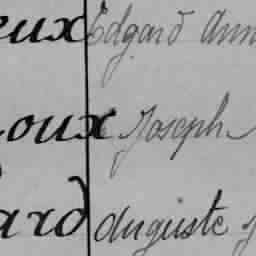 eux Edgard Ann
oux Joseph
ard Auguste